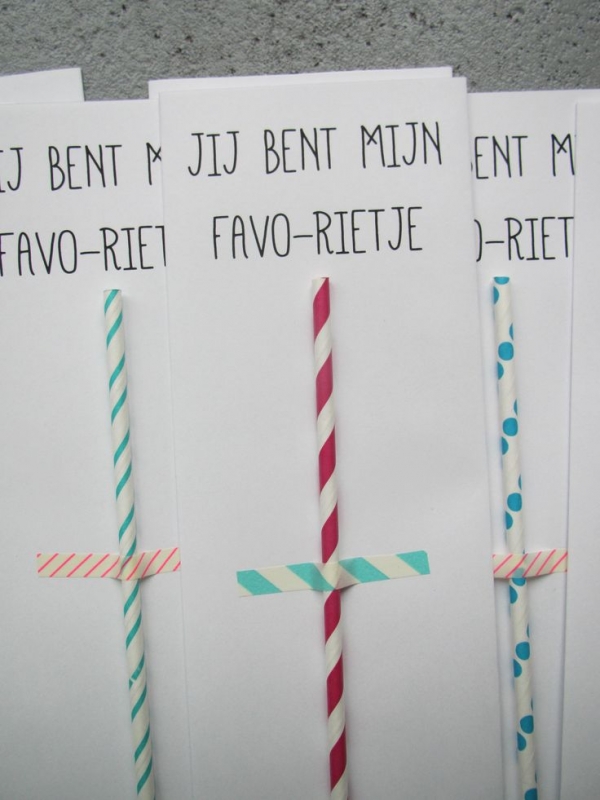 IJ BENT M
FAVO-RIET
JIJ BENT MIJN
FAVO-RIETJE
ENT M
O-RIET